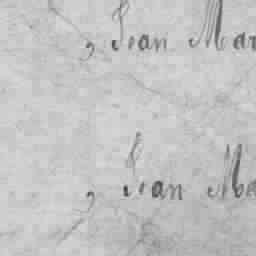 , Jean Mar
, Jean Ma